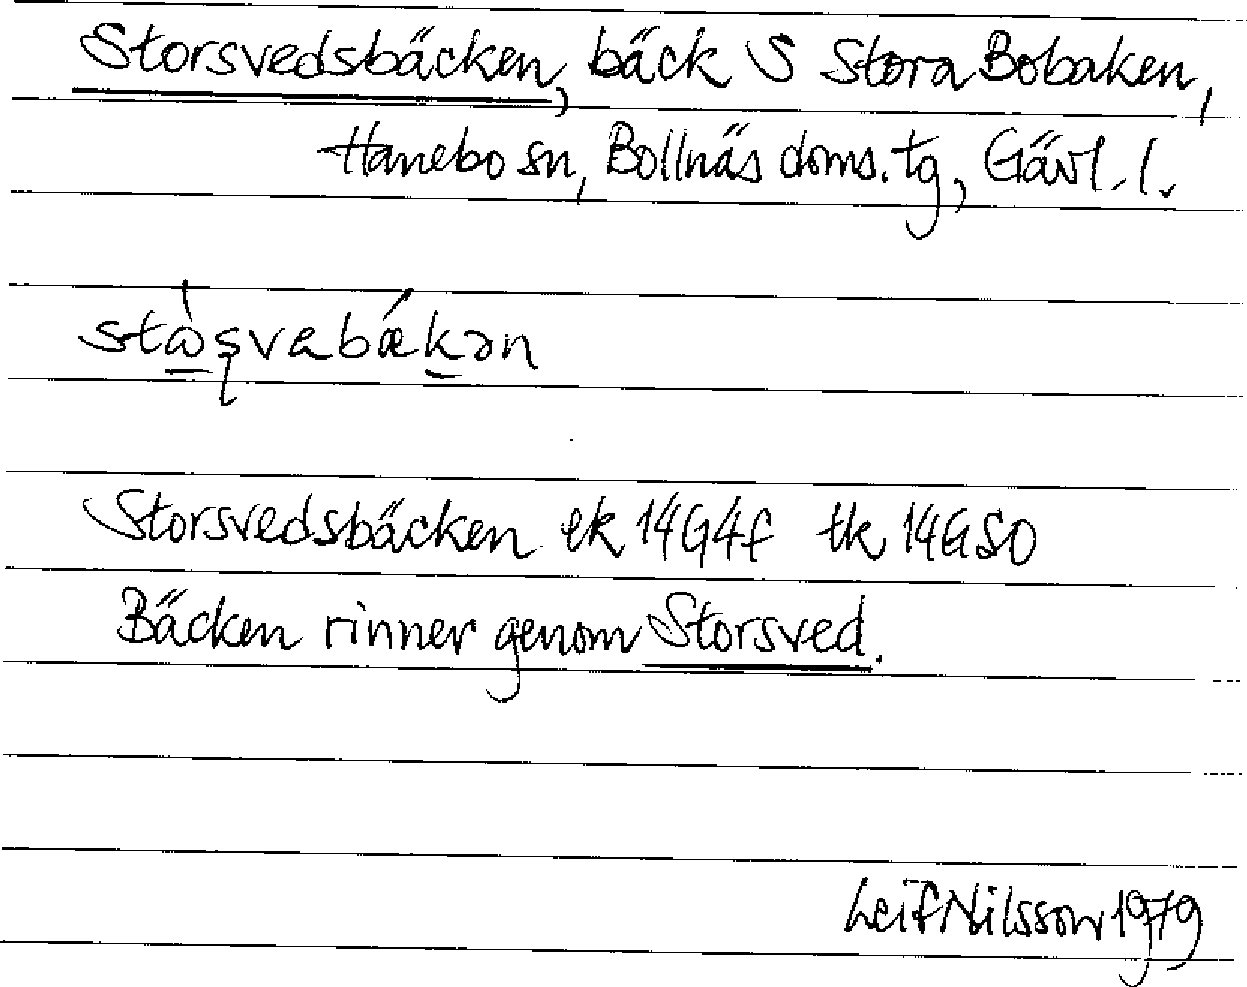 Storsvedsbäcken, bäck S Stora Bobaken,
Hanebo sn, Bollnäs doms. tg, Gävl. l.
Storsvedsbäcken ek 14G4f tk 14GSO
Bäcken rinner genom Storsved.
Leif Nilsson 1979